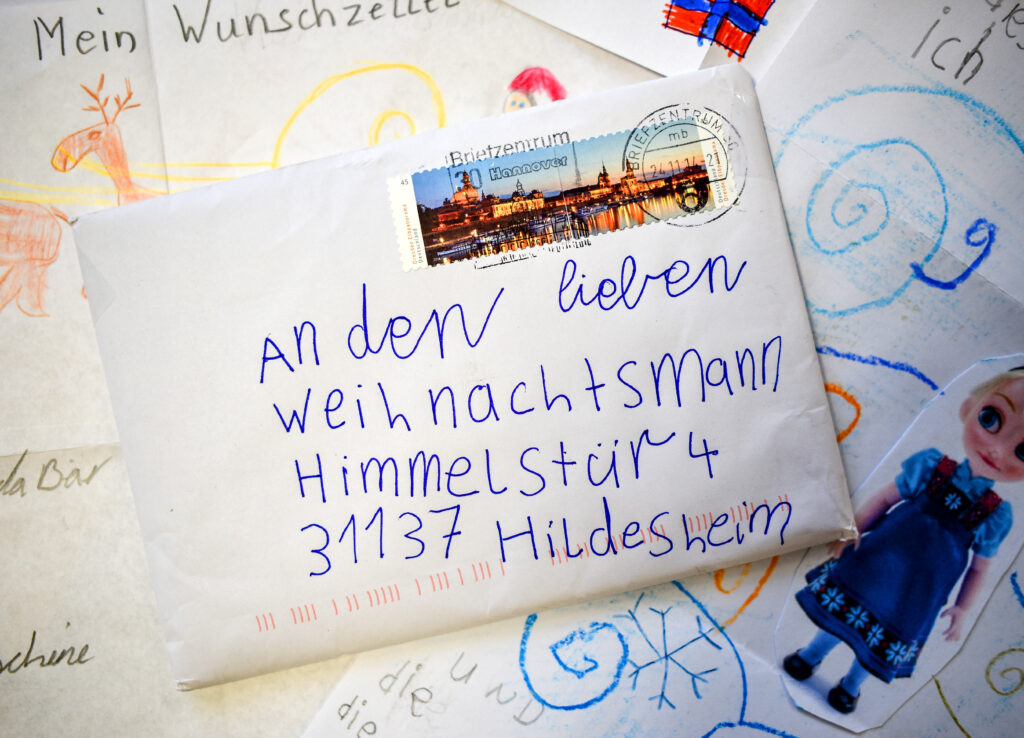 Mein Wunschzettel
ich
Briefzentrum
30 Hannover
BRIEFZENTRUM 30
mb
24.11.14-21
45
Dresdner Elbpanorama
Deutschland
An den lieben
Weihnachtsmann
Himmelstür 4
31137 Hildesheim
da Bär
schine
die
die
und